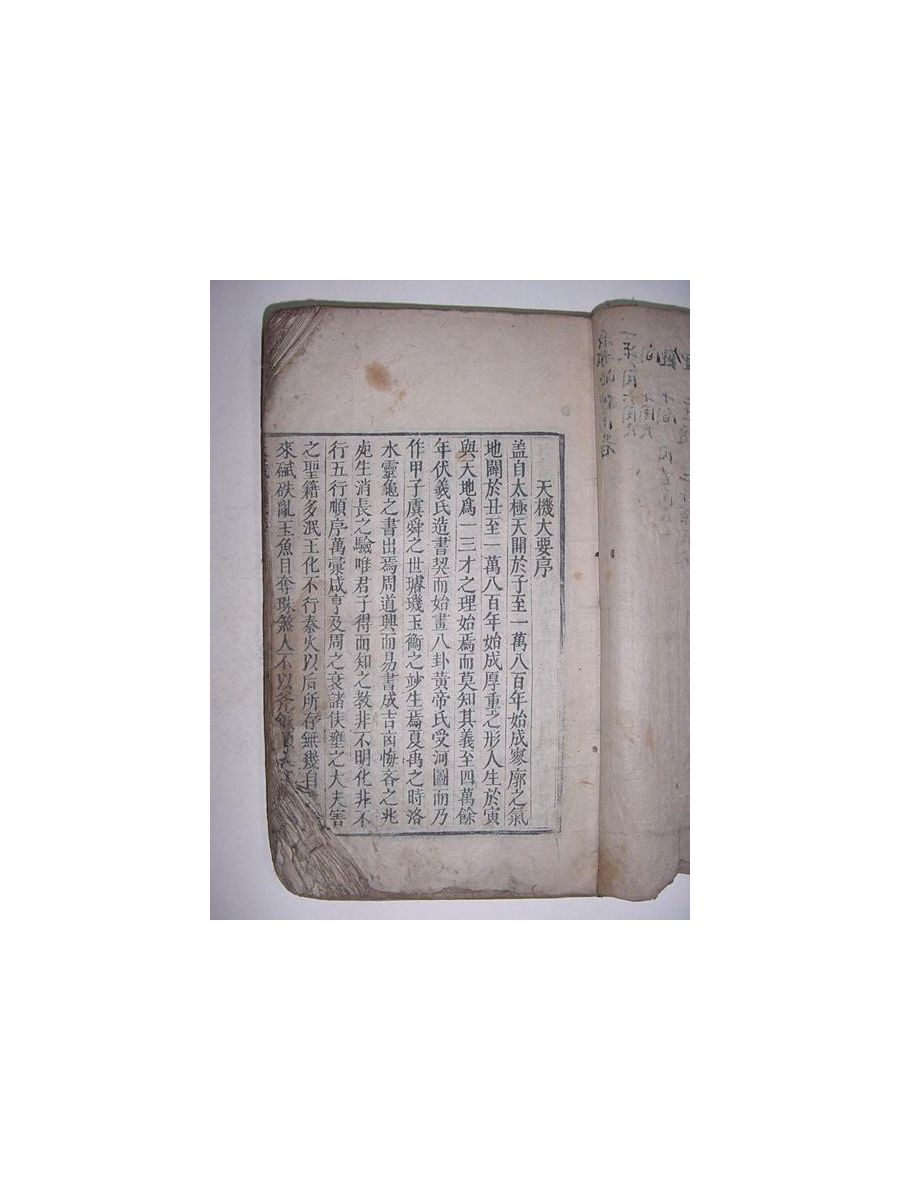 天機大要序
盖自太極天開於子至一萬八百年始成寥廓之氣
地闢於丑至一萬八百年始成厚重之形人生於寅
與天地爲一三才之理始焉而莫知其義至四萬餘
年伏羲氏造書契而始畫八卦黃帝氏受河圖而乃
作甲子虞舜之世璿璣玉衡之妙生焉夏禹之時洛
水靈龜之書出焉周道興而易書成吉凶悔吝之兆
死生消長之驗唯君子得而知之教非不明化非不
行五行順序萬彙咸亨及周之衰諸侯壅之大夫害
之聖籍多泯王化不行秦火以后所存無幾自
來珷砆亂玉魚目奪珠煞人不以斧